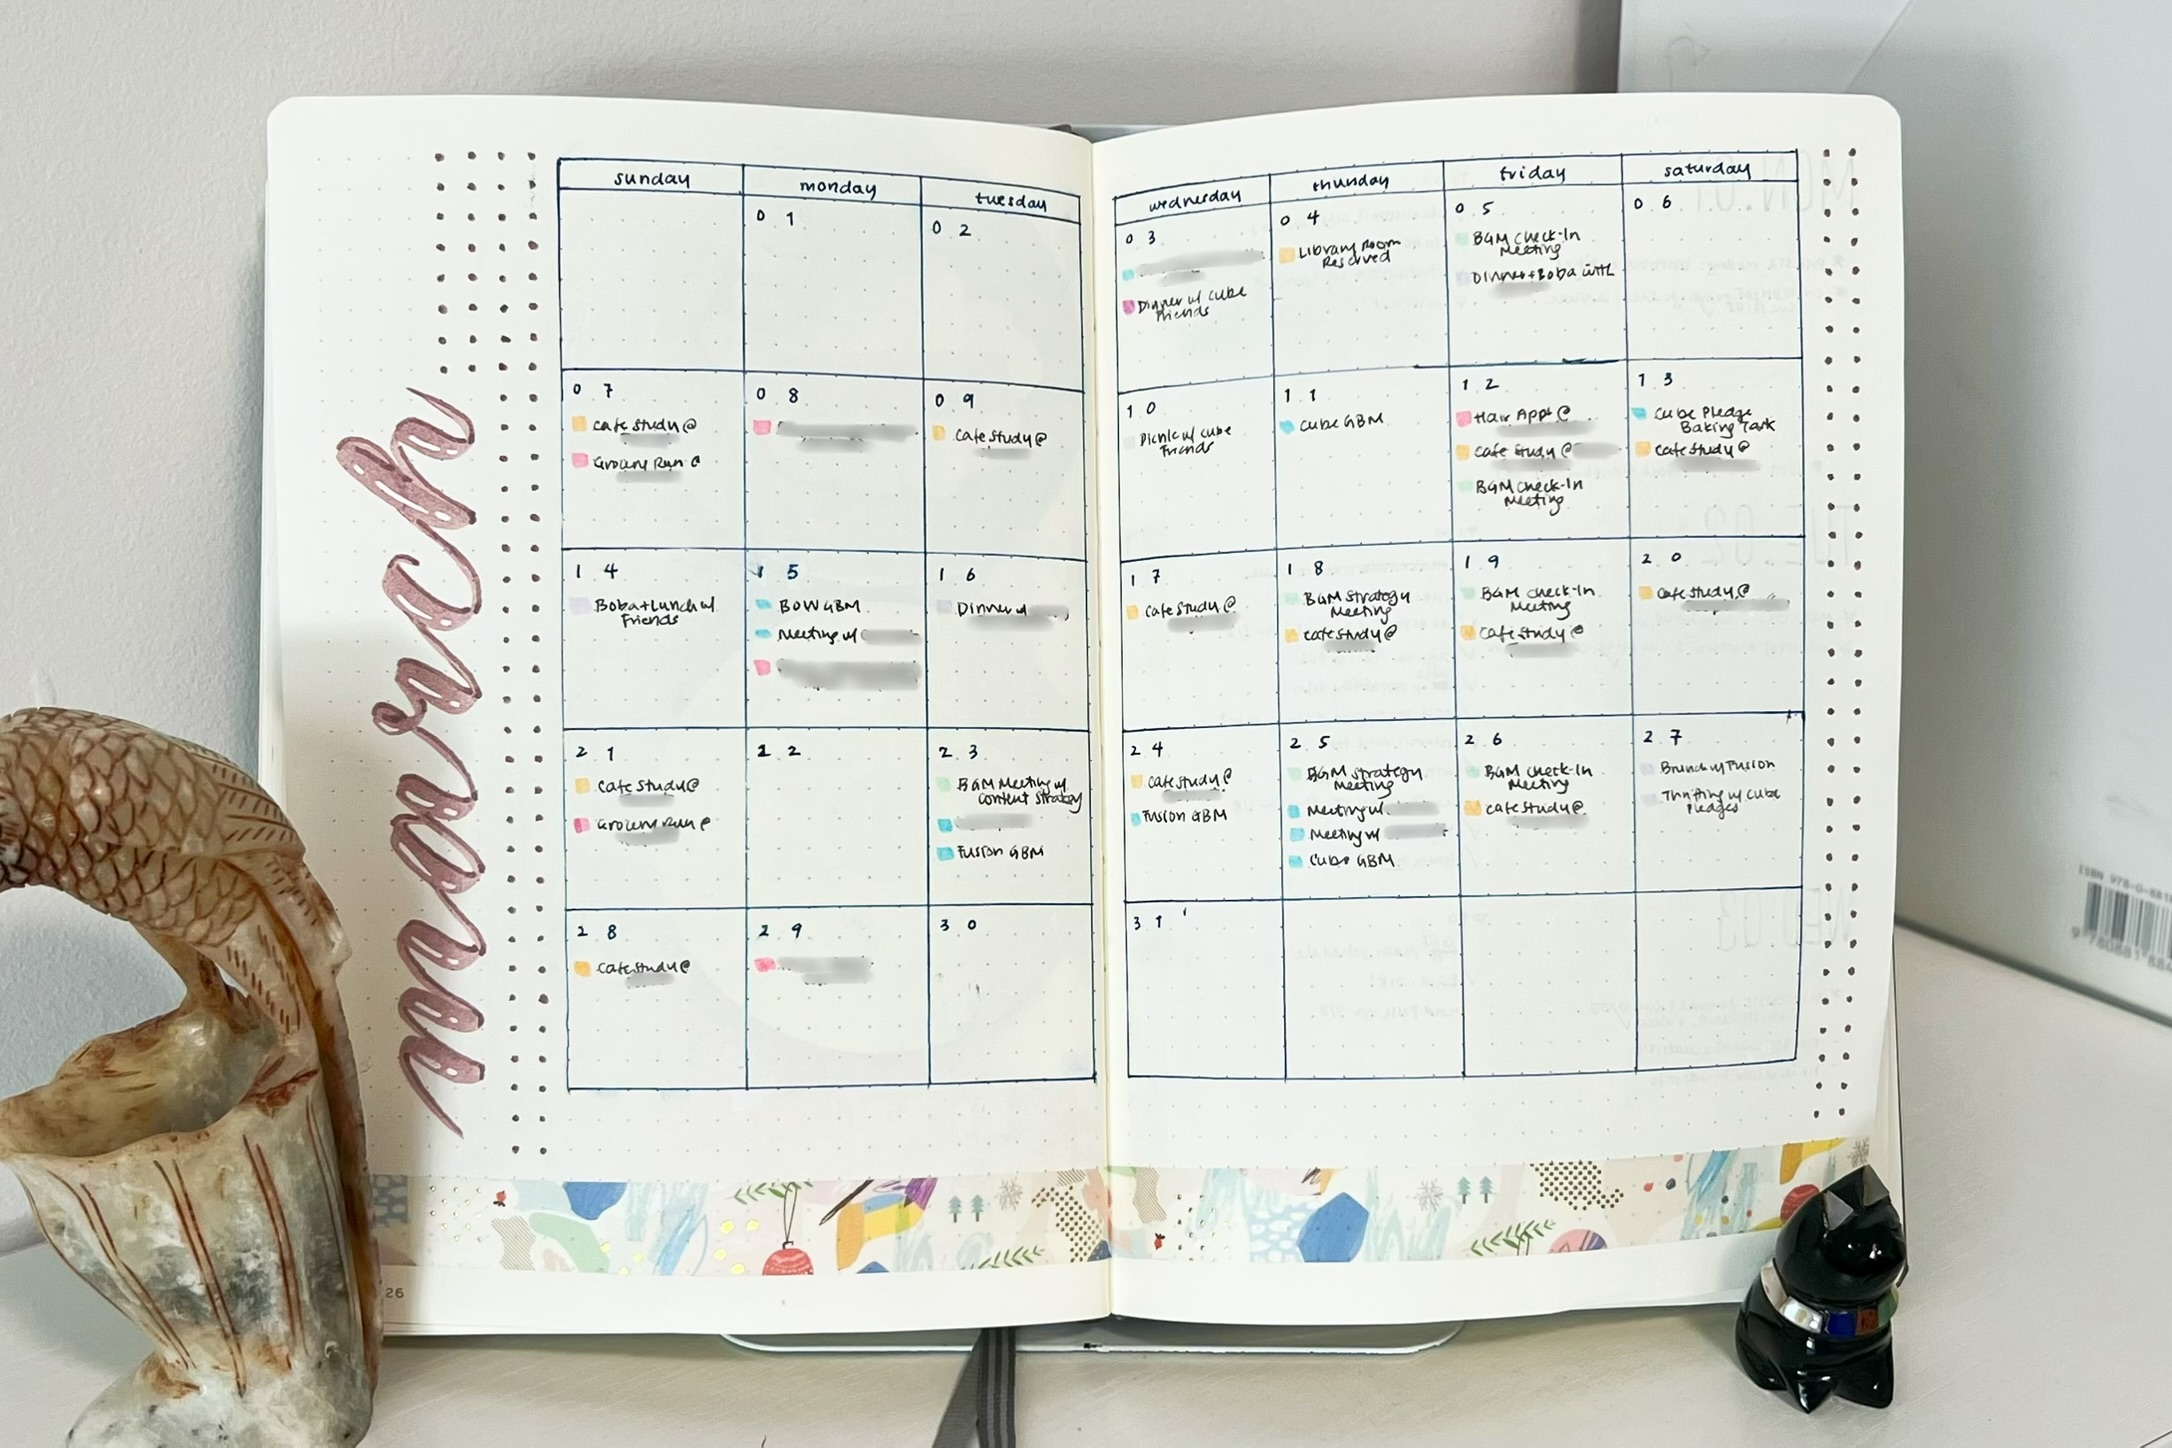 march
sunday
monday
tuesday
wednesday
thursday
friday
saturday
01
02
03
Dinner w/ Cube
Friends
04
Library Room
Reserved
05
BGM Check-In
Meeting
Dinner+Boba with
06
07
Cafe Study @
Grocery Run @
08
09
Cafe Study @
10
Picnic w/ Cube
Friends
11
Cube GBM
12
Hair Appt @
Cafe Study @
BGM Check-In
Meeting
13
Cube Pledge
Baking Task
Cafe Study @
14
Boba+Lunch w/
Friends
15
BOW GBM
Meeting w/
16
Dinner w/
17
Cafe Study @
18
BGM Strategy
Meeting
Cafe Study @
19
BGM Check-In
Meeting
Cafe Study @
20
Cafe Study @
21
Cafe Study @
Grocery Run @
22
23
BGM Meeting w/
Content Strategy
Fusion GBM
24
Cafe Study @
Fusion GBM
25
BGM Strategy
Meeting
Meeting w/
Meeting w/
Cube GBM
26
BGM Check-In
Meeting
Cafe Study @
27
Brunch w/ Fusion
Thrifting w/ Cube
Pledges
28
Cafe Study @
29
30
31
26